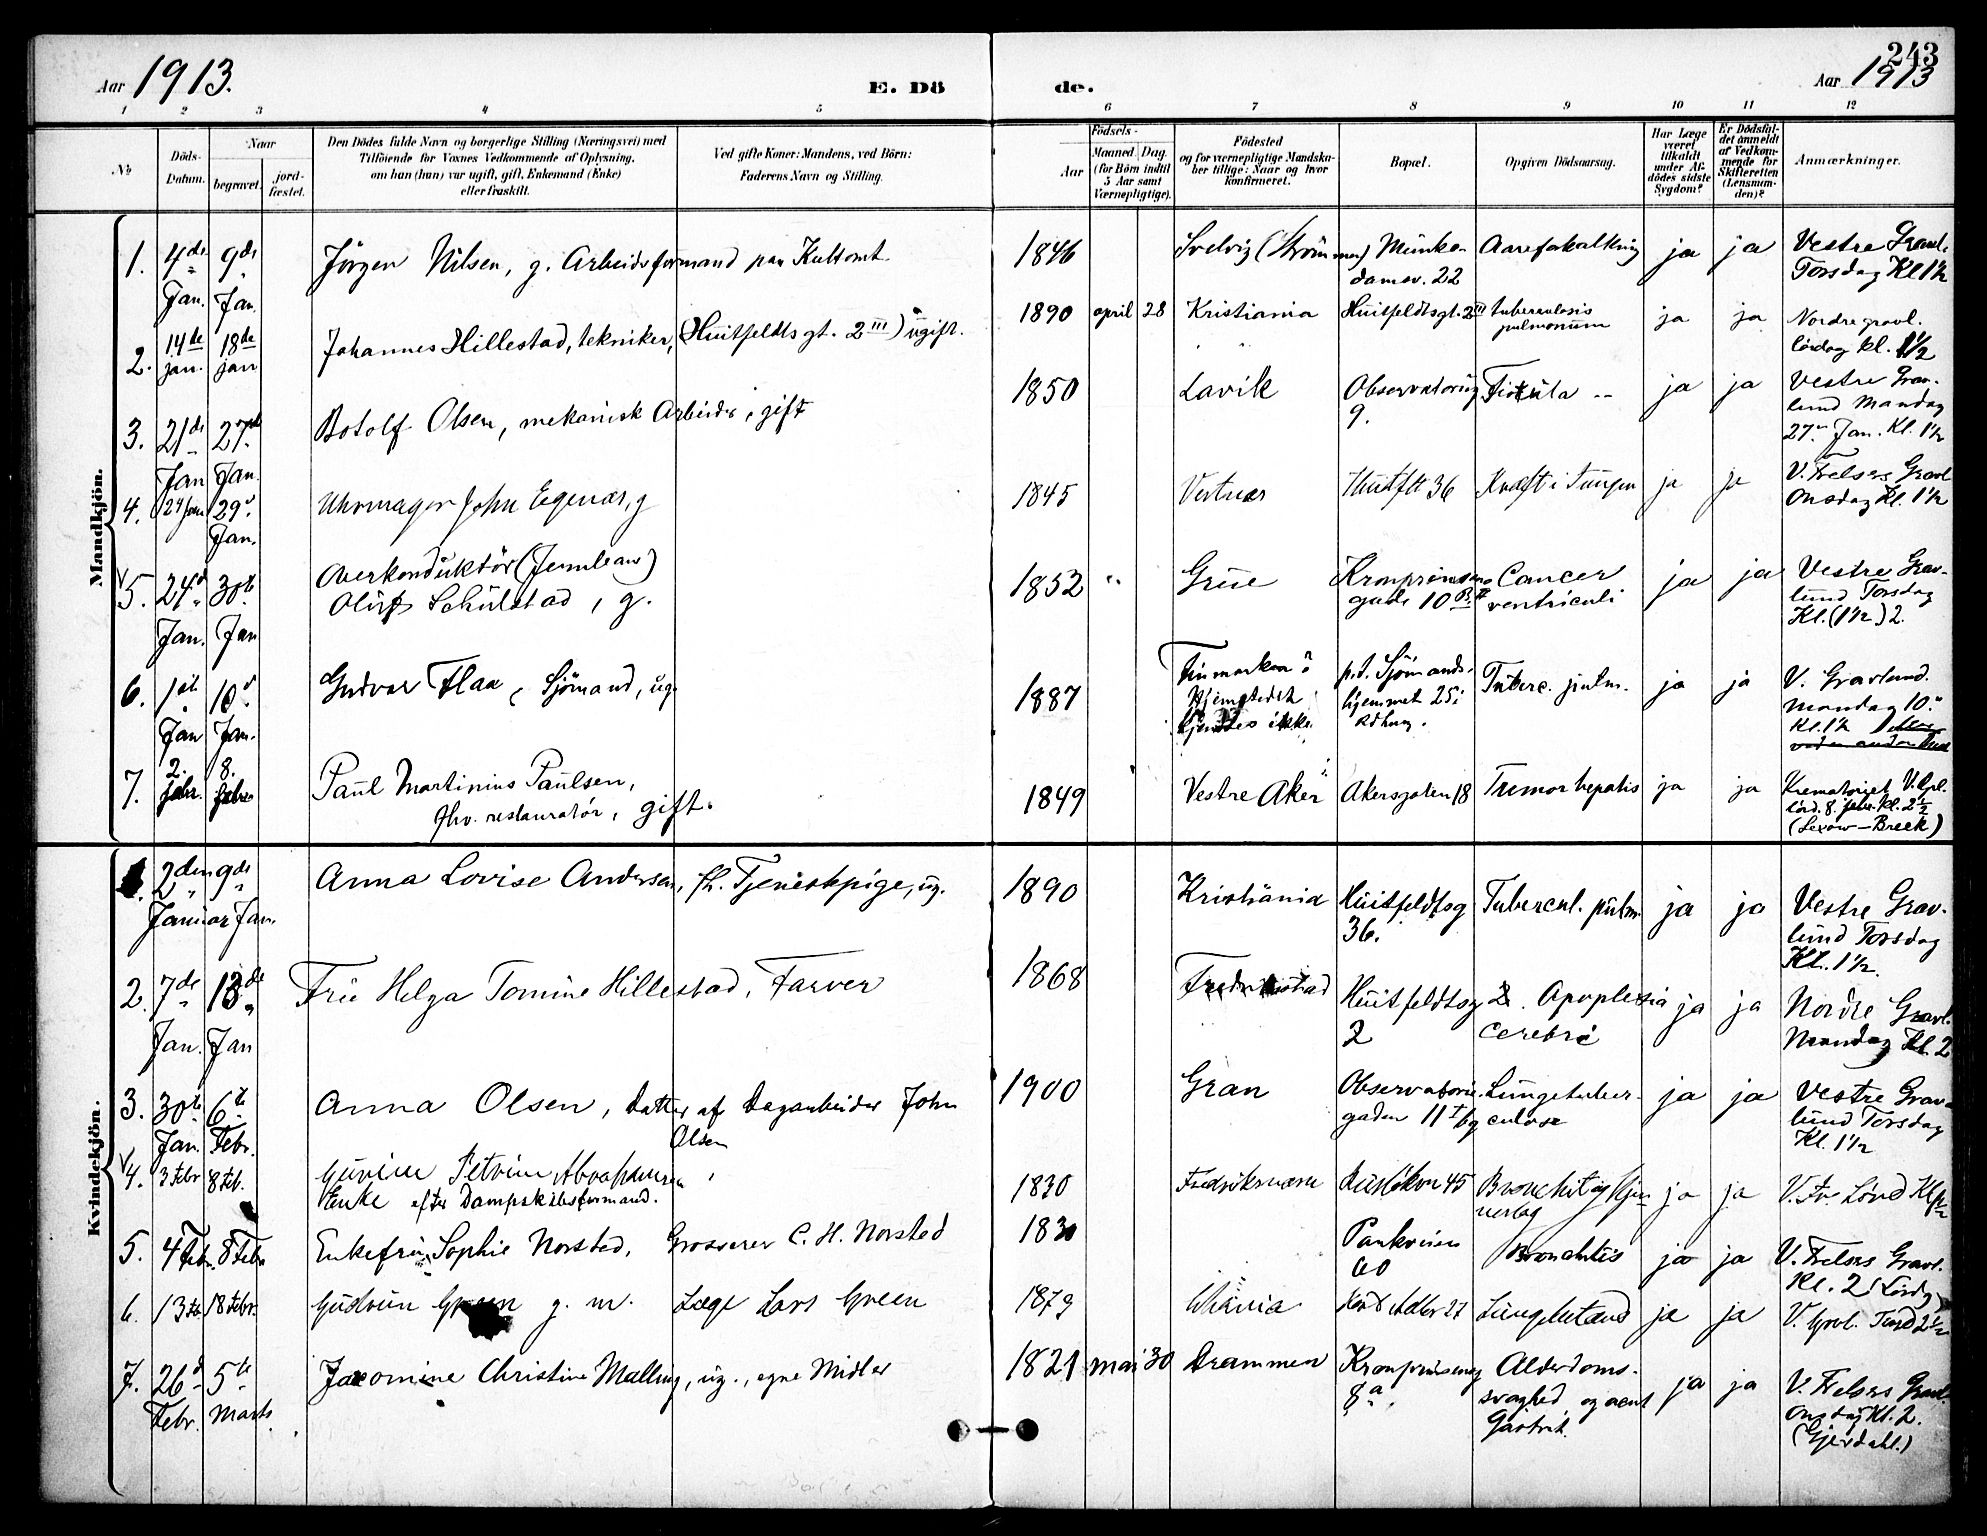 243
Aar 1913. E. Dö de. Aar 1913
1 2 3 4 5 6 7 8 9 10 11 12
No
Döds-Datum.
Naar
begravet.
jord-fæstet.
Den Dödes fulde Navn og borgerlige Stilling (Næringsvei) med
Tilföiende for Voxnes Vedkommende af Oplysning,
om han (hun) var ugift, gift, Enkemand (Enke)
eller fraskilt.
Ved gifte Koner: Mandens, ved Börn:
Faderens Navn og Stilling.
Födsels-
Aar
Maaned. Dag.
(for Börn indtil
5 Aar samt
Værnepligtige).
Födested
og for værnepligtige Mandska-
ber tillige: Naar og hvor
konfirmeret.
Bopæl.
Opgiven Dödsaarsag.
Har Læge
været
tilkaldt
under Af-
dödes sidste
Sygdom?
Er Dödsfal-
det anmeldt
af Vedkom-
mende for
Skifteretten
(Lensman-
den)?
Anmærkninger.
Mandkjön.
1. 4de Jan. 9de Jan. Jörgen Nilsen, g. Arbeidsformand paa Kultomt 1846 Svelvig (Strömmen) Munke-
damsv. 22 Aareforkalkning ja ja Vestre Gravl.
Torsdag Kl 1½
2. 14de jan. 18de jan Johannes Hillestad, tekniker, (Huitfeldts gt. 2 III) ugift. 1890 april 28 Kristiania Huitfeldtsgt. 2 III tuberculosis
pulmonum ja ja Nordre gravl.
lördag kl. 1½
3. 21de Jan 27de Jan. Botolf Olsen, mekanisk Arbeider, gift 1850 Lavik Observatoriig
9. ja ja Vestre Grav-
lund Mandag
27. Jan. Kl. 1½
4. 24 Jan 29. Jan. Uhrmager John Egenæs, g 1845 Vestnes Huitft 36 Kræft i Tungen ja ja V. Frelsers Gravl
Onsdag Kl. 1½
5. 24d Jan. 30te Jan Overkonduktör (Jernbane)
Oluf Schulstad, g. 1852 " Grue Kronprinsens
gade 10 B. II Cancer
ventriculi ja ja Vestre Grav-
lund Torsdag
Kl. (1½) 2.
6. 1st Jan 10d Jan. Gudvar Flaa, Sjömand, ug. 1887 Finmarken
Hjemstedet
kjendtes ikke p.t. Sjömands-
hjemmet 25 i
Rdhusg. Tuberc. pulm. ja ja V. Gravlund.
mandag 10.
Kl. 1½
7. 2. febr. 8. febr Paul Martinius Paulsen,
fhv. restauratör, gift. 1849 Vestre Aker Akersgaten 18 Tumor hepatis ja ja Krematoriet V. Gpl.
lörd. 8. febr. kl. 2½
(Lexow–Breek)
Kvindekjön.
1. 2den Januar 9de Jan. Anna Lovise Andersen, fh. Tjenestepige, ug. 1890 Kristiania Huitfeldtsg
36. Tubercul. pulm. ja ja Vestre Grav-
lund Torsdag
Kl. 1½
2. 7de Jan. 13de Jan Frü Helga Tomine Hillestad, Farver 1868 Fredrikstad Huitfeldtsg 2.
2 Apoplexia
cerebri ja ja Nordre Gravl.
Mandag Kl. 2
3. 30te Jan. 6te Febr. Anna Olsen, Datter af Dagarbeider John
Olsen 1900 Gran Observatorie-
gaden 11 I bg Lungetuber-
culose ja ja Vestre Grav-
lund Torsdag
Kl. 1½
4. 3 Febr 8 Feb. Gurine Petrine Abrahamsen
Enke efter Dampskibsformand. 1830 Fredriksværn Ruslökv 45 Bronchit og ja ja V. Fr. Lörd
5. 4 Febr. 8 Febr Enkefrü Sophie Norsted, Grosserer C. H. Norsted 1830 Parkveien
60 Bronchitis ja ja V. Frelsers Gravl.
Kl. 2 Lördg
6. 13 Feb 18 Febr. Gudrun Green g. m. Læge Lars Green 1879 Chrania Kort Adler 27 Lungebetænd ja ja V. Gravl. Tirsd 2½
7. 26d Febr. 5te Marts. Jacomine Christine Malling, ug., egne Midler 1821 mai 30 Drammen Kronprinsensg
8 a. Alderdoms-
svaghed, og acut
Gastrit. ja ja V. Frelsers Gravl.
Onsdag Kl. 2.
(Gjerdahl.)